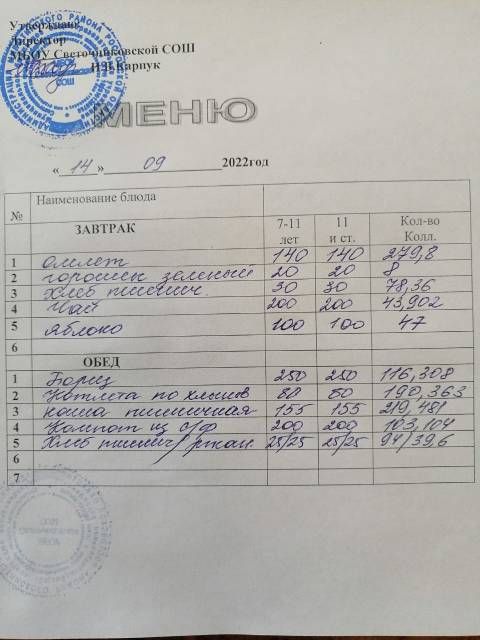 Утверждаю
Директор
МБОУ Светочниковской СОШ
Карпук
МЕНЮ
« 14 » 09 2022год
№ Наименование блюда
ЗАВТРАК 7-11 лет 11 и ст. Кол-во Колл.
1 омлет 140 140 279,8
2 горошек зеленый 20 20 8
3 Хлеб пшенич. 30 30 78,36
4 Чай 200 200 43,902
5 яблоко 100 100 47
6
ОБЕД
1 Борщ 250 250 116,308
2 Котлета по 80 80 190,363
3 каша пшеничная 155 155 219,481
4 Компот из с/ф 200 200 103,104
5 Хлеб пшенич/ржан. 25/25 25/25 94/39,6
6
7